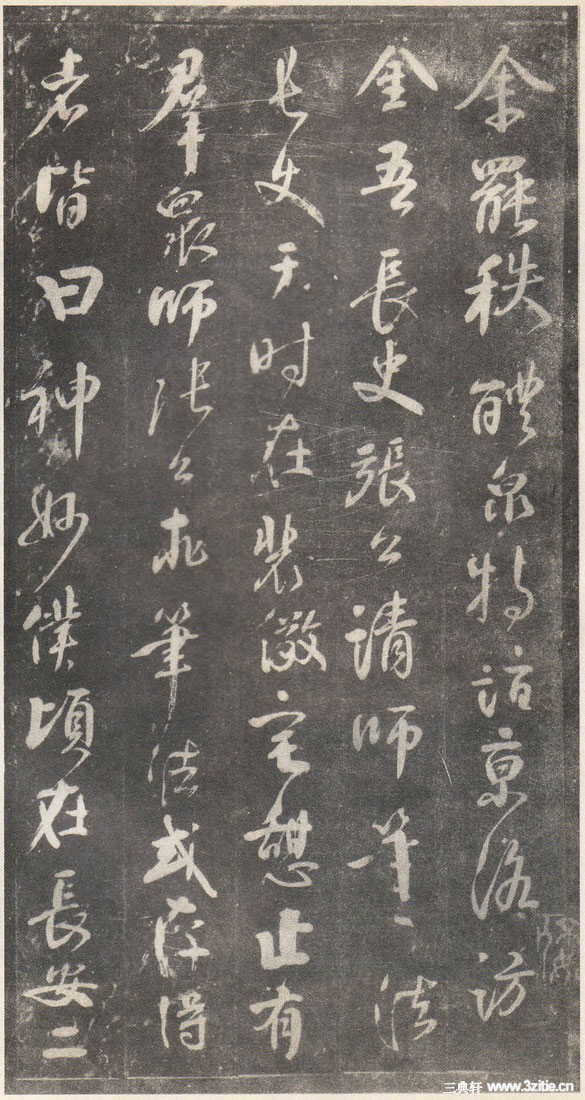 余罷秩醴泉特詣京洛訪
金吾長史張公請師筆法
長史于时在裴儆宅憩止有
羣眾師張公求筆法或存得
者皆曰神妙僕頃在長安二
三典轩 www.3zitie.cn